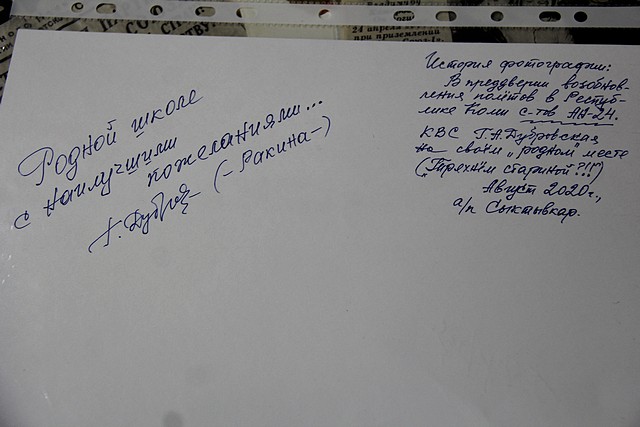 24 апреля
при приземлении
Родной школе
с наилучшими
пожеланиями...
Г. Дубров (-Ракина-)
История фотографии:
В преддверии возобнов-
ления полётов в Респуб-
лике Коми с-тов АН-24.
КВС Г.А. Дубровская
на своём „родном" месте
(„Тряхнём стариной"?!!)
Август 2020г.,
а/п Сыктывкар.